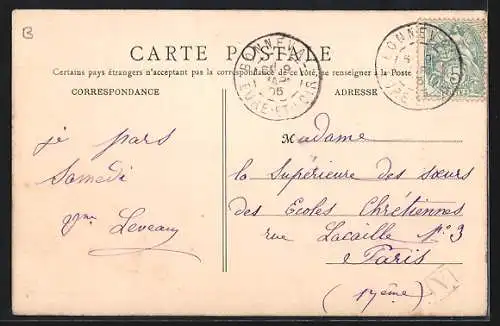 B
CARTE POSTALE
Certains pays étrangers n'acceptant pas la correspondance de ce côté, se renseigner à la Poste
CORRESPONDANCE
ADRESSE
je pars
Samedi
Leveau
Madame
la Supérieure des sœurs
des Ecoles Chrétiennes
rue Lacaille N° 3
Paris
(17ème)
BONNEVAL
05
EURE-ET-LOIR
BONNEVAL
5